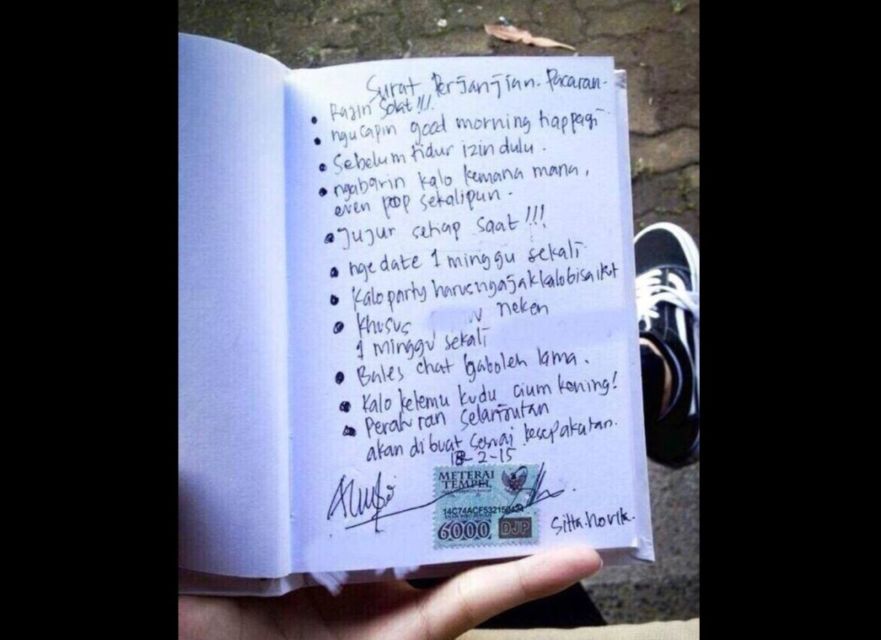 Surat Perjanjian Pacaran
• Rajin Solat!!!
• ngucapin good morning tiap pagi
• Sebelum tidur izin dulu.
• ngabarin kalo kemana mana,
even pop sekalipun.
• Jujur setiap saat!!!
• ngedate 1 minggu sekali
• Kalo party harus ngajak kalo bisa ikut
• Khusus neken
1 minggu sekali
• Bales chat gaboleh lama.
• Kalo ketemu kudu cium kening!
• Peraturan Selanjutan
akan dibuat sesuai kesepakatan.
2-15
METERAI
TEMPEL
6000 DJP
Sitta.Novita.